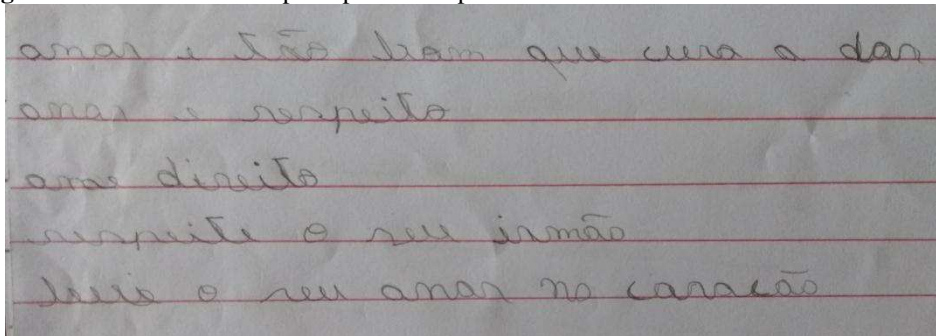 amar e tão bom que cura a dor
amar e respeito
amar direito
respeite o seu irmão
o seu amor no caracão